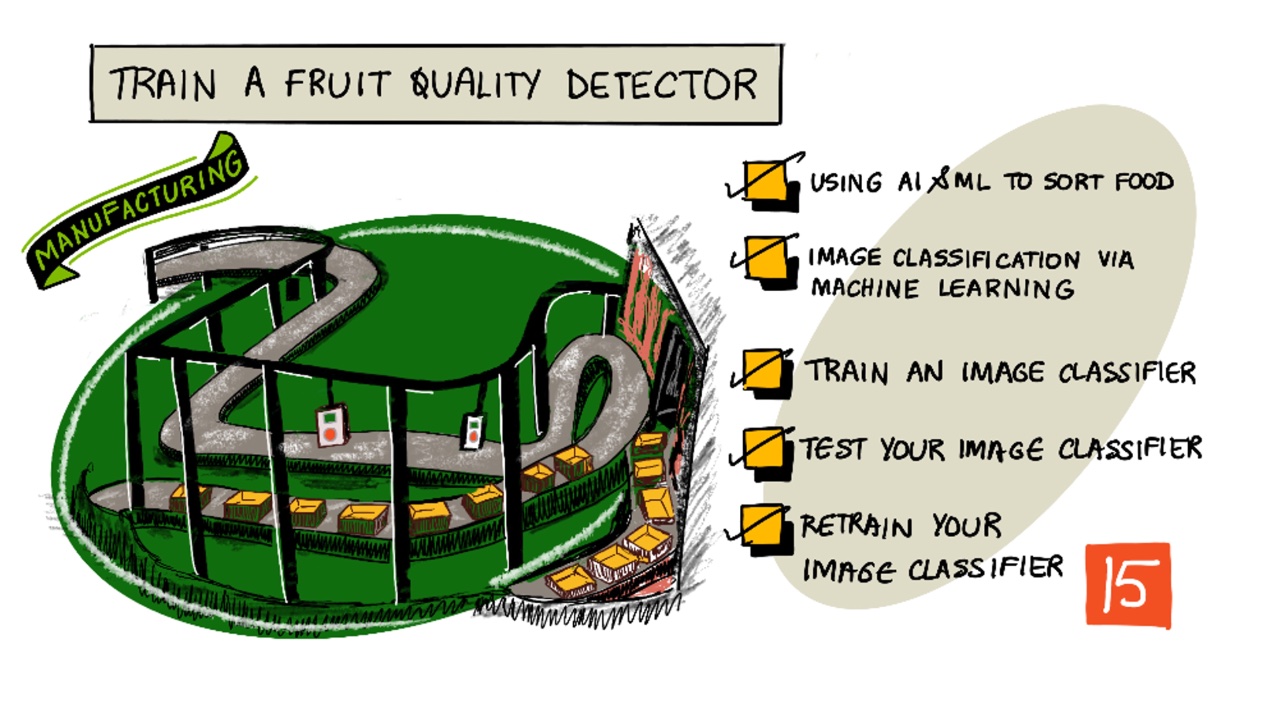 TRAIN A FRUIT QUALITY DETECTOR
MANUFACTURING
USING AI & ML TO SORT FOOD
IMAGE CLASSIFICATION VIA
MACHINE LEARNING
TRAIN AN IMAGE CLASSIFIER
TEST YOUR IMAGE CLASSIFIER
RETRAIN YOUR
IMAGE CLASSIFIER
15